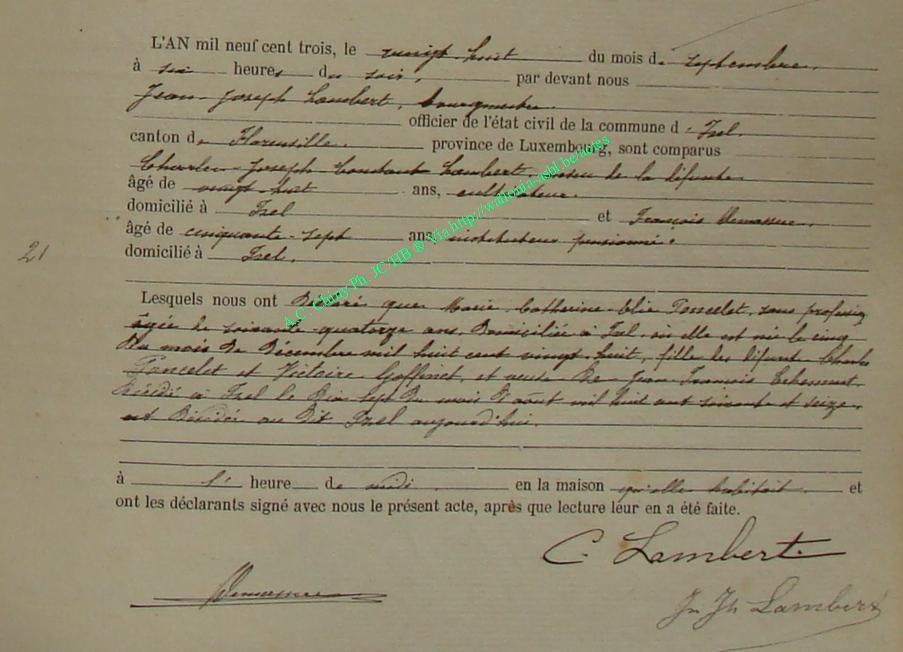 L'AN mil neuf cent trois, le vingt-huit du mois de septembre,
à six heures du soir, par devant nous
Jean-Joseph Lambert, bourgmestre
officier de l'état civil de la commune d'Izel,
canton de Florenville, province de Luxembourg, sont comparus
Charles-Joseph-Constant Lambert, neveu de la défunte
âgé de vingt-huit ans, cultivateur,
domicilié à Izel et François
âgé de cinquante-sept ans instituteur pensionné,
domicilié à Izel,
21
Lesquels nous ont déclaré que Marie-Catherine-Élie Poncelet, sans profession
âgée de soixante-quatorze ans, domiciliée à Izel, où elle est née le cinq
du mois de Décembre mil huit cent vingt-huit, fille des défunts Charles
Poncelet et Victoire Goffinet, et veuve de Jean François
décédé à Izel le dix sept du mois d'août mil huit cent soixante et seize,
est décédée au dit Izel aujourd'hui.
à l' heure de midi en la maison qu'elle habitait et
ont les déclarants signé avec nous le présent acte, après que lecture leur en a été faite.
C. Lambert
Jn Jh Lambert
A.C. Chiny Ph. JC/HB ® Via http://wallonia-asbl.be/actes